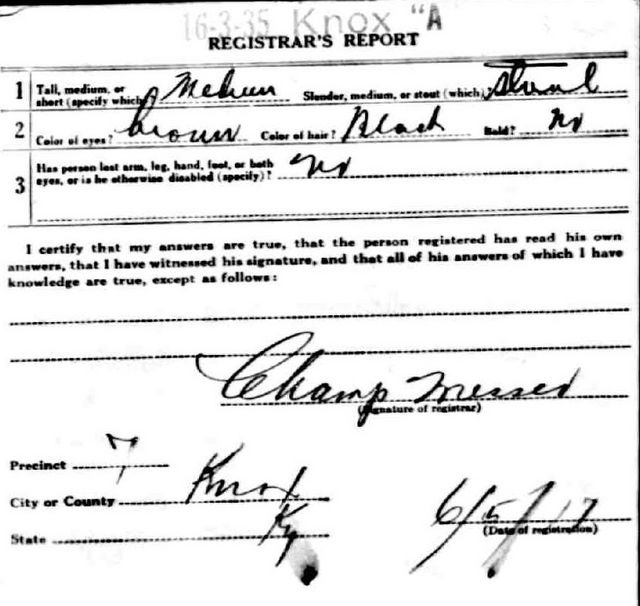 16-3-35 Knox "A
REGISTRAR'S REPORT
1 Tall, medium, or short (specify which)? Medium Slender, medium, or stout (which)? Stout
2 Color of eyes? brown Color of hair? Black Bald? no
3 Has person lost arm, leg, hand, foot, or both eyes, or is he otherwise disabled (specify)? no
I certify that my answers are true, that the person registered has read his own
answers, that I have witnessed his signature, and that all of his answers of which I have
knowledge are true, except as follows:
Champ Messer
(Signature of registrar)
Precinct 7
City or County Knox
State Ky
6/5/17
(Date of registration)